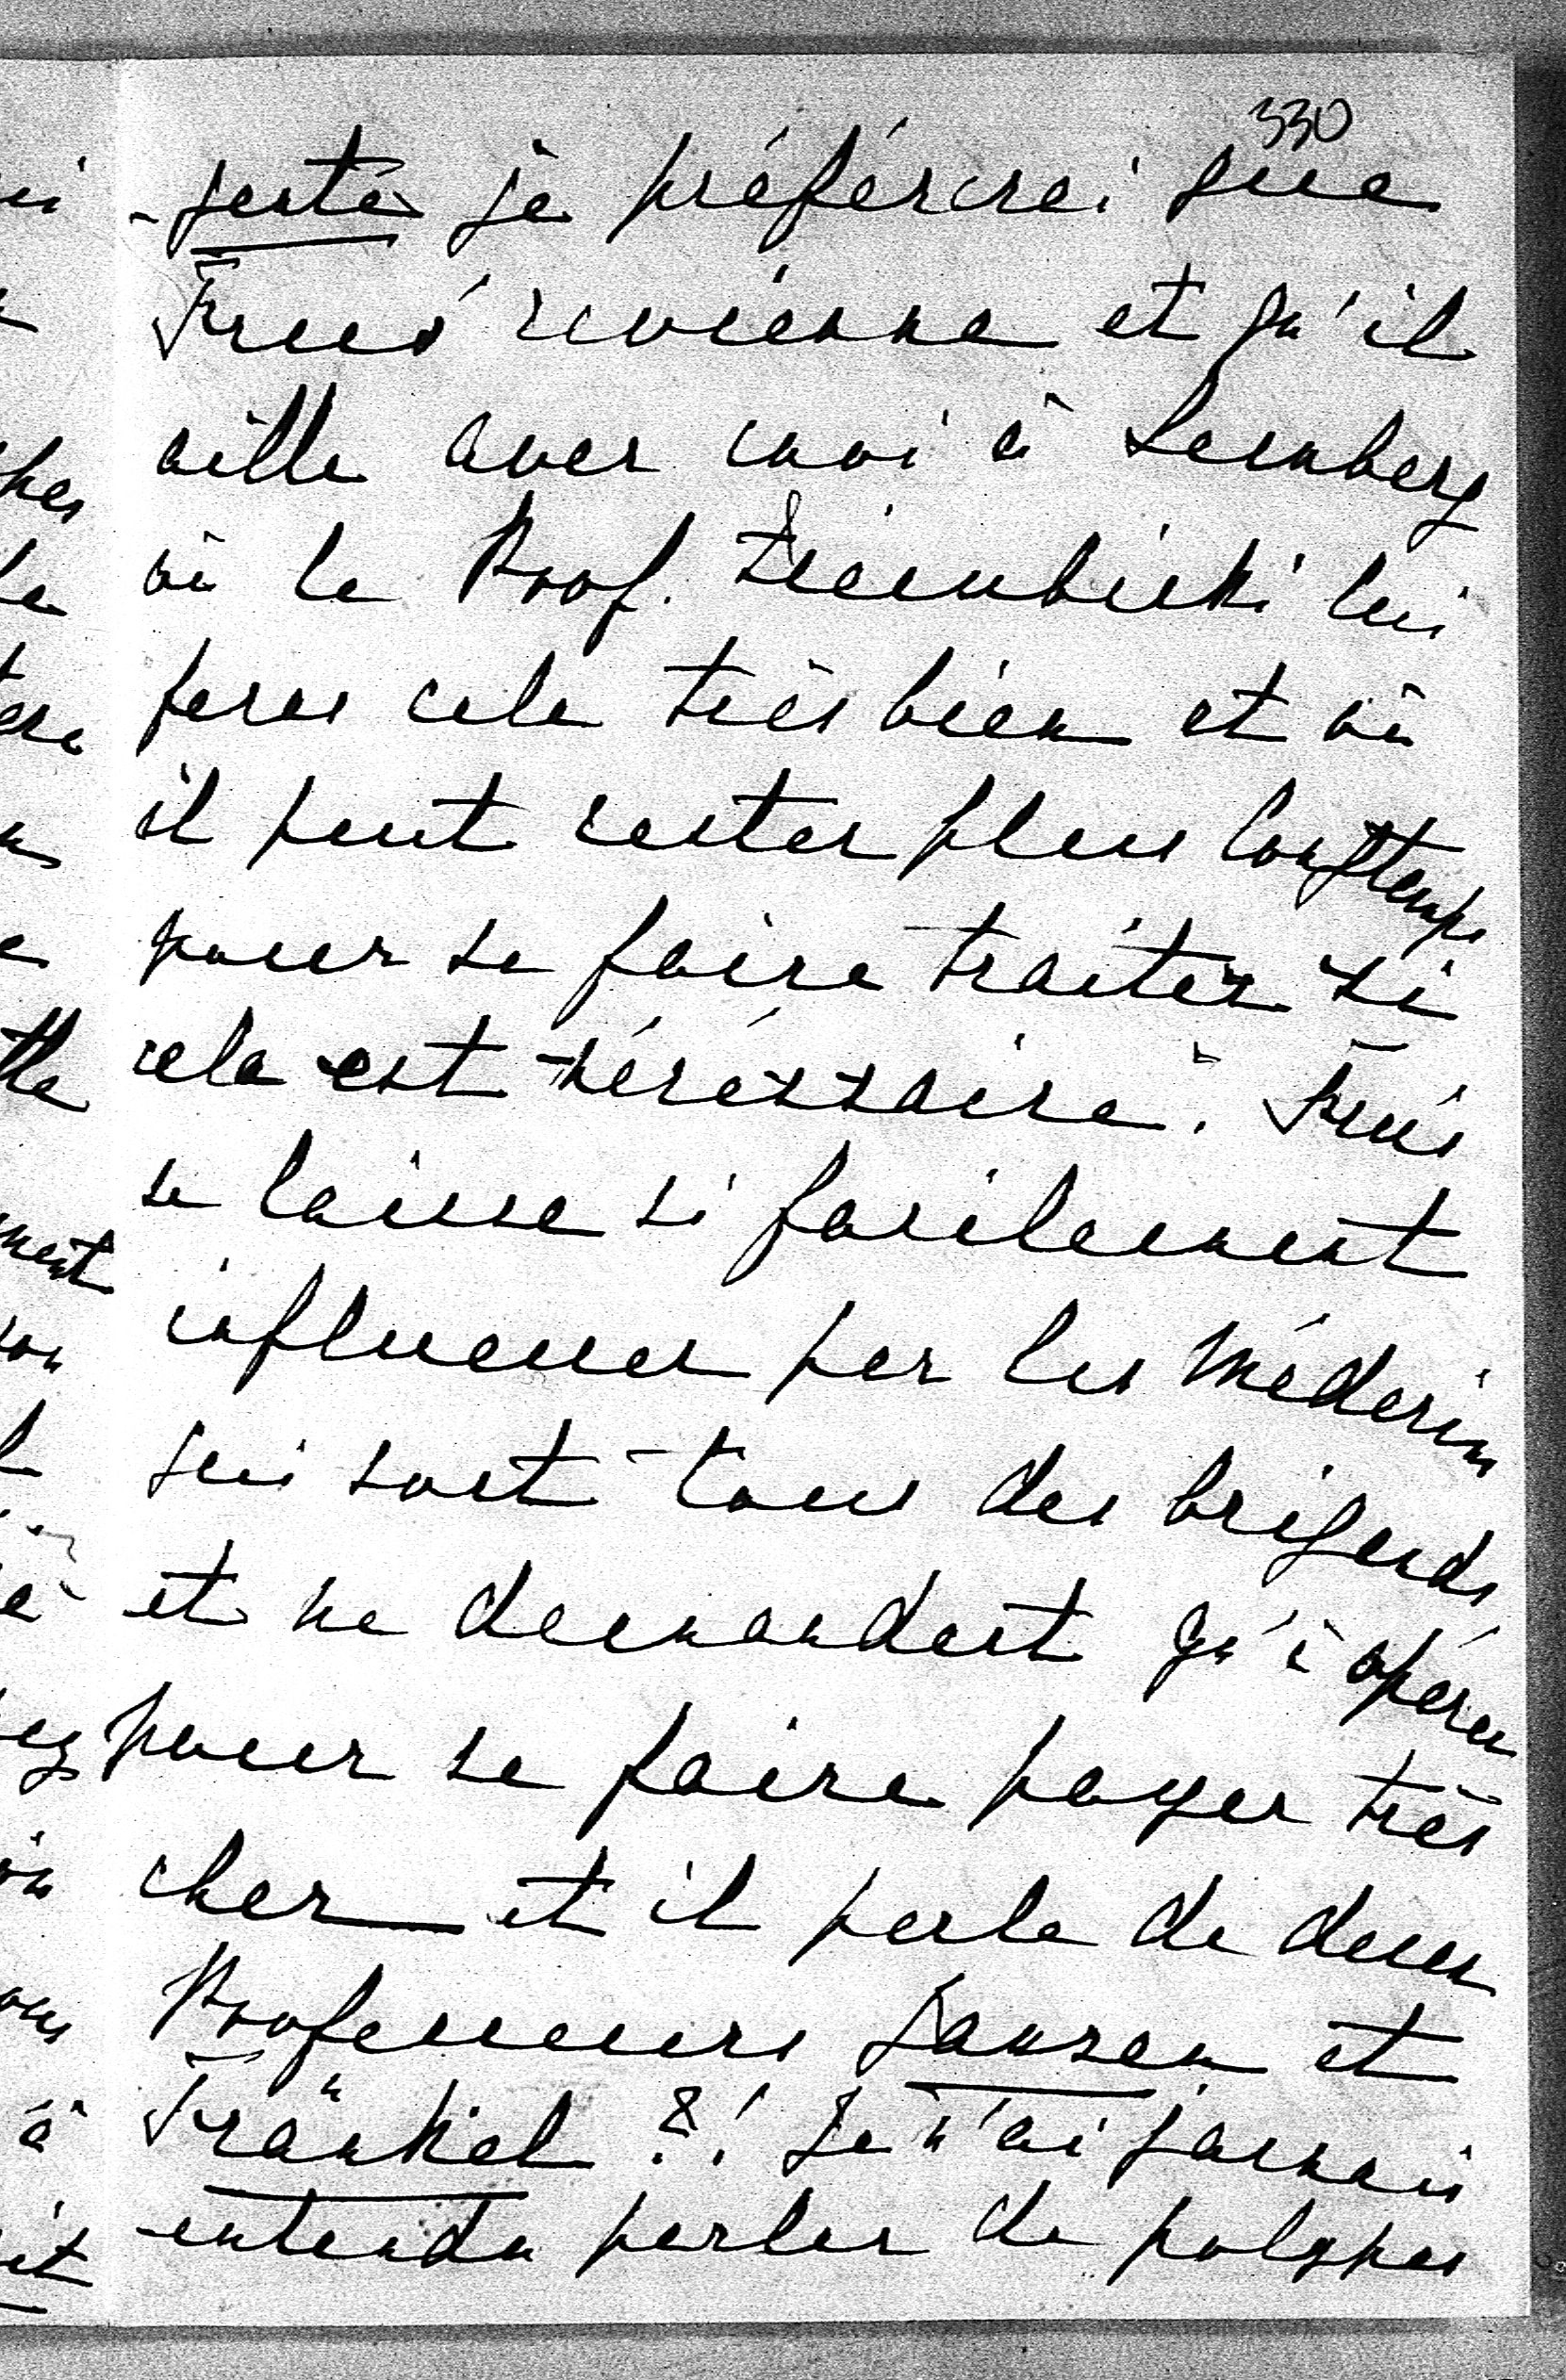 330
juste je préférerai que
revienne et qu'il
aille avec moi à Lemberg
où le Prof. Ziembicki lui
feras cela très bien et où
il peut rester plus longtemps
pour se faire traiter si
cela est nécessaire.
se laisse si facilement
influencer par les Médecins
qui sont tous des brigands
et ne demandent qu'à opérer
pour se faire payer très
cher et il parle de deux
Professeurs Jansen et
Fränkel ?! Je n'ai jamais
entendu parler de polypes